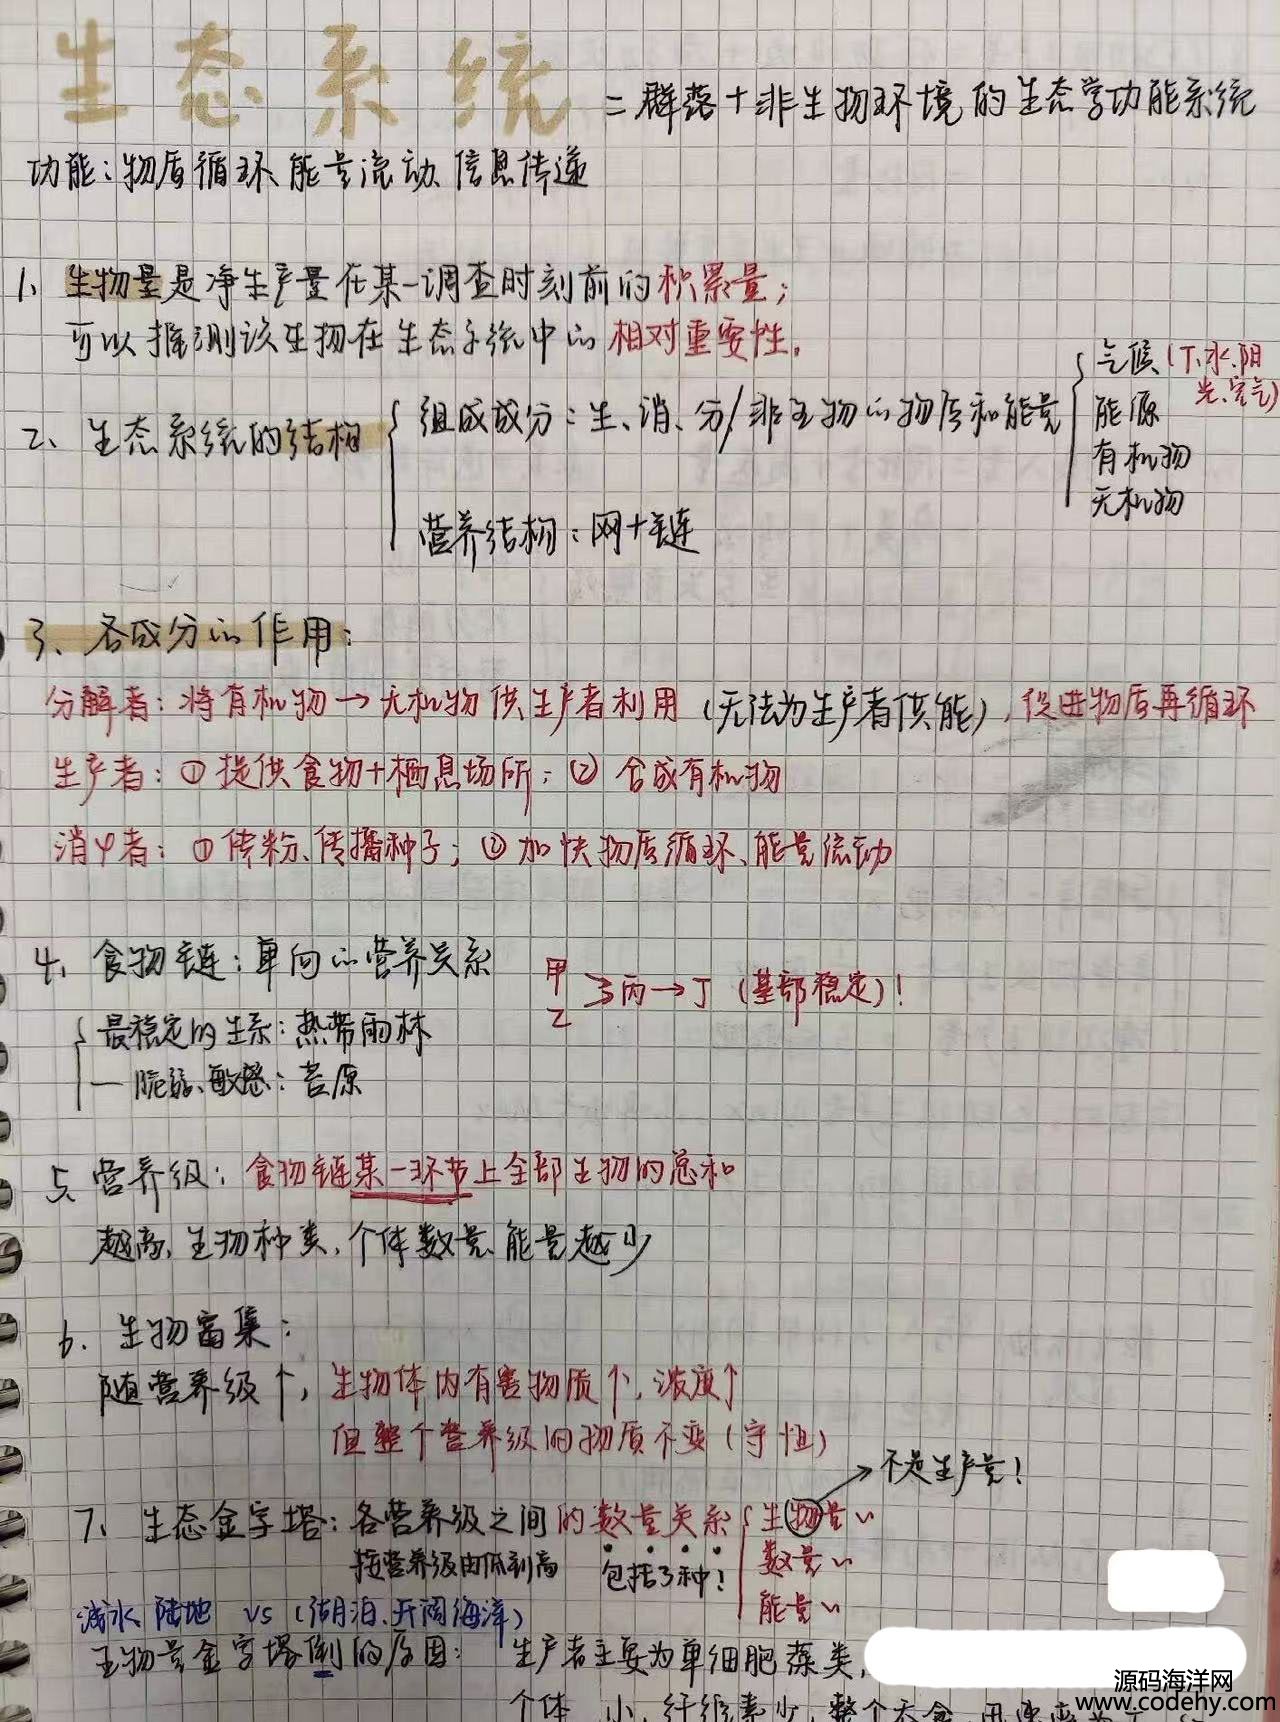 生态系统 = 群落+非生物环境的生态学功能系统
功能：物质循环、能量流动、信息传递
1、生物量是净生产量在某一调查时刻前的积累量；
可以推测该生物在生态系统中的相对重要性。
2、生态系统的结构
组成成分：生、消、分/非生物的物质和能量
气候（T、水、阳光、空气）
能源
有机物
无机物
营养结构：网+链
3、各成分的作用：
分解者：将有机物→无机物供生产者利用（无法为生产者供能），促进物质再循环
生产者：①提供食物+栖息场所；②合成有机物
消费者：①传粉、传播种子；②加快物质循环、能量流动
4、食物链：单向的营养关系
甲
乙
→丙→丁（基部稳定）！
最稳定的生系：热带雨林
一脆弱、敏感：苔原
5、营养级：食物链某一环节上全部生物的总和
越高，生物种类，个体数量、能量越少
6、生物富集：
随营养级↑，生物体内有害物质↑，浓度↑
但整个营养级的物质不变（守恒）
→不是生产量！
7、生态金字塔：各营养级之间的数量关系
生物量~
数量~
能量~
按营养级由低到高 包括3种！
浅水、陆地 VS（湖泊、开阔海洋）
生物量金字塔倒的原因：生产者主要为单细胞藻类，
个体小，纤维素少，整个
源码海洋网
www.codehy.com